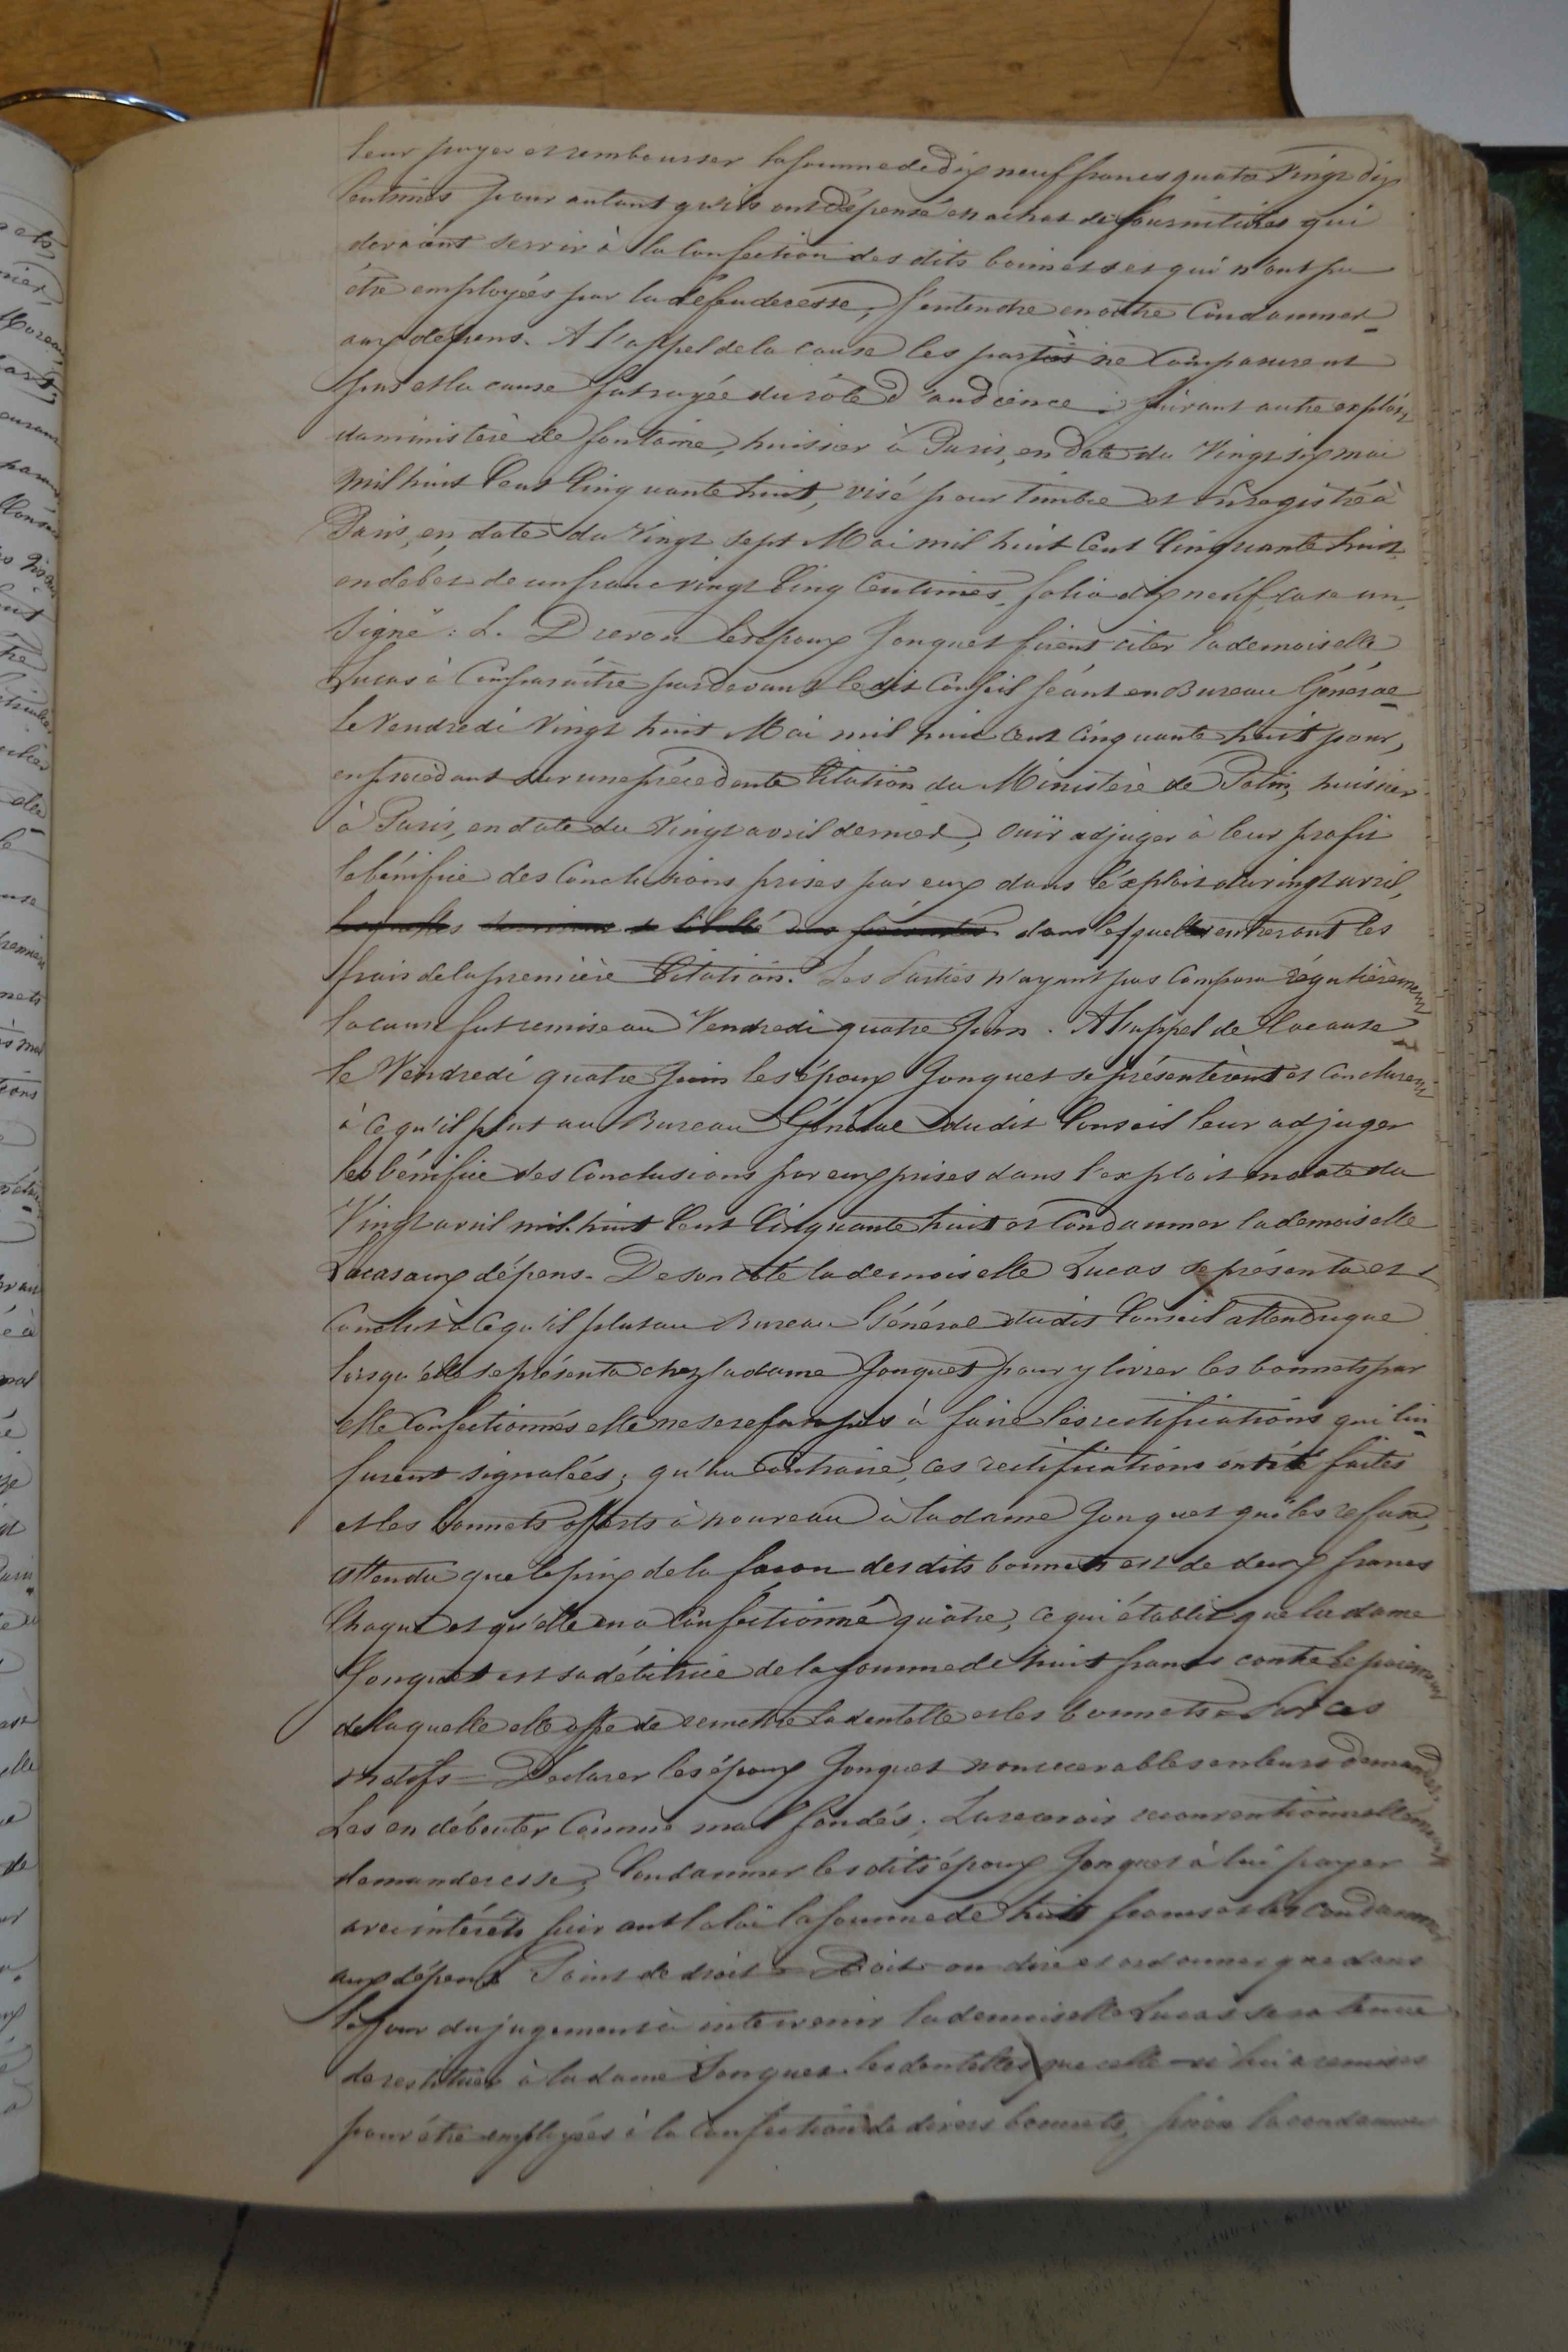 leur payer et rembourser la somme de dix neuf francs quatre vingt dix
centimes pour autant qu'ils ont dépensé en achat de fournitures qui
devaient servir à la confection des dits bonnets et qui n'ont pu
être employées par la défenderesse, s'entendre en outre condamner
aux dépens. A l'appel de la cause les parties ne comparurent
pas et la cause fut rayée du rôle d'audience. Suivant autre exploit
du ministère de fontaine, huissier à Paris, en date du Vingt six mai
mil huit Cent Cinquante huit, visé pour timbre et enregistré à
Paris, en date du Vingt sept Mai mil huit Cent Cinquante huit
en debet de un franc vingt Cinq Centimes, folio dix neuf, case un,
Signé: L. Drevon les époux Jonquet firent citer la demoiselle
Lucas à Comparaître pardevant le dit Conseil séant en Bureau Général
le Vendredi Vingt huit Mai mil huit cent cinquante huit pour,
en procédant sur une précédente Citation du Ministère de Potin, huissier
à Paris, en date du Vingt avril dernier, ouïr adjuger à leur profit
le bénifice des Conclusions prises par eux dans l'exploit du vingt avril,
dans lesquelles entreront les
frais de la première Citation. Les Parties n'ayant pas comparu régulièrement
la cause fut remise au Vendredi quatre Juin. A l'appel de la cause
le Vendredi quatre Juin les époux Jonquet se présentèrent et conclurent
à ce qu'il plut au Bureau Général dudit Conseil leur adjuger
les bénifice des Conclusions par eux prises dans l'exploit en date du
Vingt avril mil huit Cent Cinquante huit et Condamner la demoiselle
Lucas aux dépens. De son côté la demoiselle Lucas se présenta et
Conclut à ce qu'il plut au Bureau Général dudit Conseil attendu que
lorsqu'elle se présenta chez la dame Jonquet pour y livrer les bonnets par
elle confectionnés elle ne se refusa pas à faire les rectifications qui lui
furent signalées; qu'au Contraire, ces rectifications ont été faites
et les bonnets offerts à nouveau à la dame Jonquet qui les refusa,
attendu que le prix de la façon des dits bonnets est de deux francs
Chaque et qu'elle en a Confectionné quatre, ce qui établit que la dame
Jonquet est sa débitrice de la somme de huit francs contre le paiement
de laquelle elle offre de remettre la dentelle et les bonnets = Par ces
motifs = Déclarer les époux Jonquet non recevables en leurs demandes.
Les en débouter Comme mal fondés; La recevoir reconventionnellement
demanderesse, Condamner les dits époux Jonquet à lui payer
avec intérêts suivant la loi la somme de huit francs et les condamner
aux dépens. Point de droit = Doit-on dire et ordonner que dans
le jour du jugement à intervenir la demoiselle Lucas sera tenue
de restituer à la dame Jonquet les dentelles que celle-ci lui a remises
pour être employées à la Confection de divers bonnets, sinon la condamner